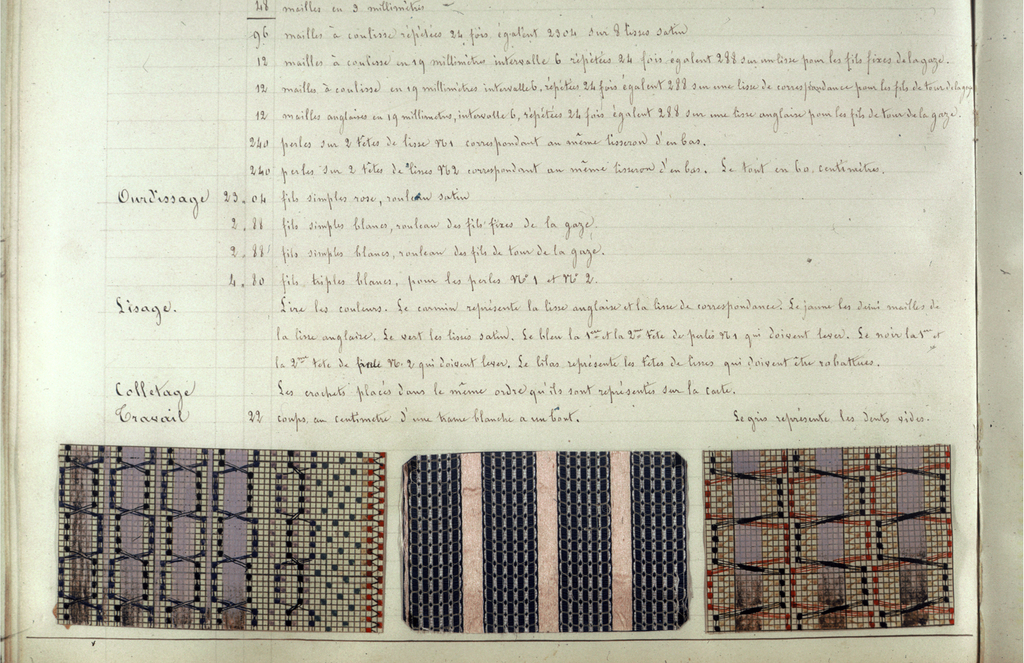 48 mailles en 3 millimètres
96 mailles à coulisse répétées 24 fois égalent 2304 sur 8 lisses satin
12 mailles à coulisse en 19 millimètres intervalle 6 répétées 24 fois égalent 288 sur un lisse pour les fils fixes de la gaze.
12 mailles à coulisse en 19 millimètres intervalle 6, répétées 24 fois égalent 288 sur une lisse de correspondance pour les fils de tour de la gaze
12 mailles anglaises en 19 millimètres, intervalle 6, répétées 24 fois égalent 288 sur une lisse anglaise pour les fils de tour de la gaze.
240 perles sur 2 têtes de lisse N1 correspondant au même lisseron d'en bas.
240 perles sur 2 têtes de lisses N2 correspondant au même lisseron d'en bas. Le tout en 60 centimètres.
Ourdissage 23.04 fils simples rose, rouleau satin
2.88 fils simples blancs, rouleau des fils fixes de la gaze
2.88 fils simples blancs, rouleau des fils de tour de la gaze.
4.80 fils triples blancs, pour les perles N° 1 et N° 2.
Lisage. Lire les couleurs. Le carmin représente la lisse anglaire et la lisse de correspondance. Le jaune les demi mailles de
la lisse anglaire. Le vert les lisses satin. Le bleu la 1ere et la 2me tête de perles N1 qui doivent lever. Le noir la 1re et
la 2me tête de perle N2 qui doivent lever. Le lilas représente les têtes de lisses qui doivent être rabattues.
Colletage Les crochets placés dans le même ordre qu'ils sont représentés sur la carte.
Travail 22 coups au centimètre d'une trame blanche à un bout. Le gris représente les dents vides.